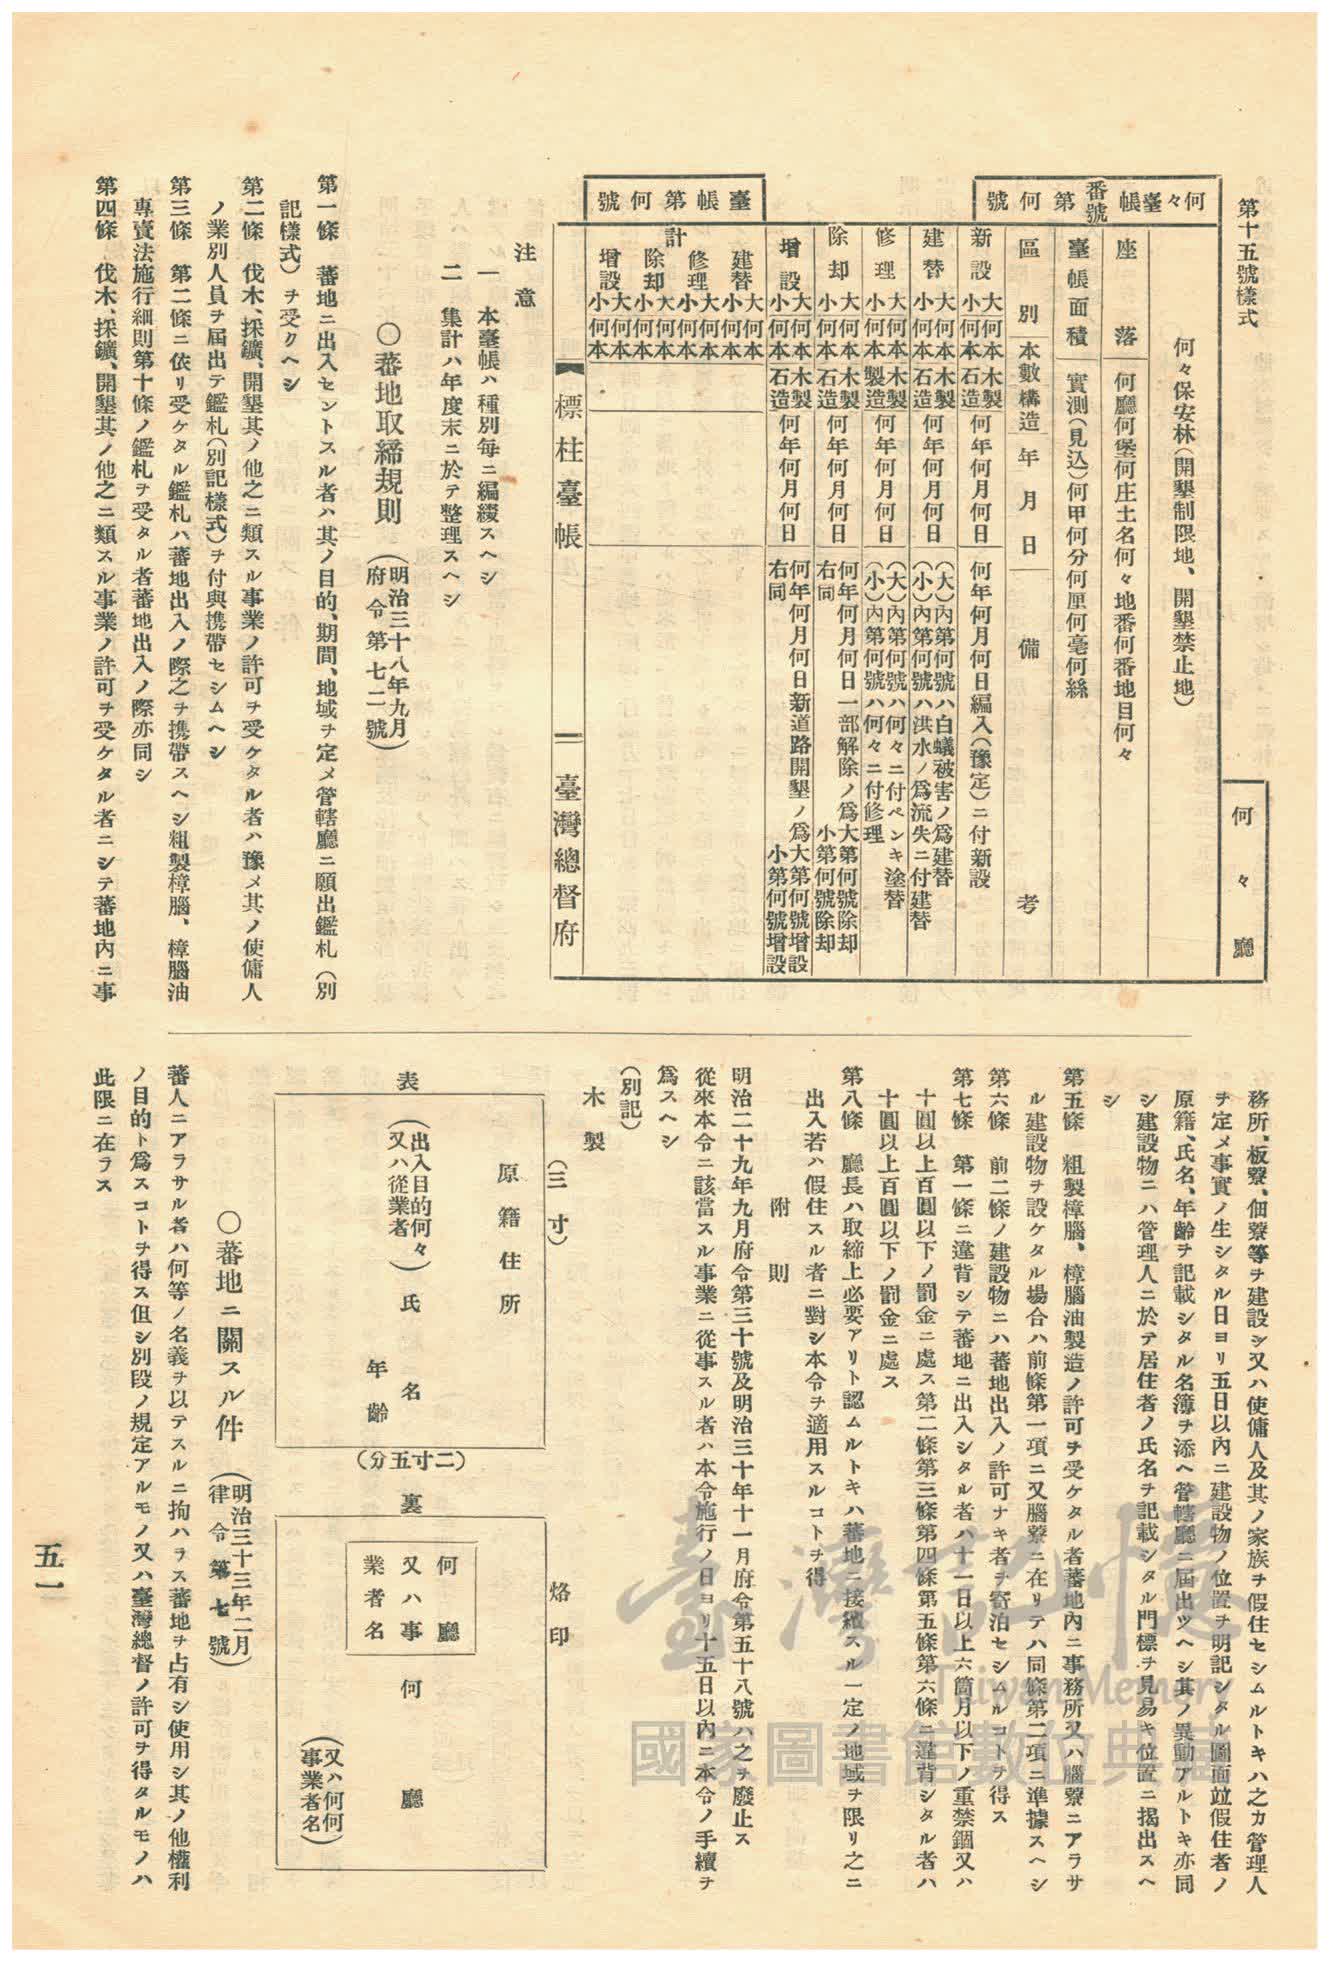 第十五號樣式
何々廳
何々臺帳番號第何號
何々保安林(開墾制限地、開墾禁止地)
座落 何廳何堡何庄土名何々地番何番地目何々
臺帳面積 實測(見込)何甲何分何厘何毫何絲
區別 本數 構造 年月日 備考
新設 大何本 小何本 木製 石造 何年何月何日 何年何月何日編入(豫定)ニ付新設
建替 大何本 小何本 木製 石造 何年何月何日 (大)內第何號ハ白蟻被害ノ爲建替
(小)內第何號ハ洪水ノ爲流失ニ付建替
修理 大何本 小何本 木製 製造 何年何月何日 (大)內第何號ハ何々ニ付ペンキ塗替
(小)內第何號ハ何々ニ付修理
除却 大何本 小何本 木製 石造 何年何月何日 何年何月何日一部解除ノ爲大第何號除却
右同 小第何號除却
增設 大何本 小何本 木製 石造 何年何月何日 何年何月何日新道路開墾ノ爲大第何號增設
右同 小第何號增設
臺帳第何號
計
建替 大何本 小何本
修理 大何本 小何本
除却 大何本 小何本
增設 大何本 小何本
標柱臺帳 臺灣總督府
注意
一 本臺帳ハ種別每ニ編綴スヘシ
二 集計ハ年度末ニ於テ整理スヘシ
○蕃地取締規則 (明治三十八年九月府令第七二號)
第一條 蕃地ニ出入セントスル者ハ其ノ目的、期間、地域ヲ定メ管轄廳ニ願出鑑札(別
記樣式)ヲ受クヘシ
第二條 伐木、採鑛、開墾其ノ他之ニ類スル事業ノ許可ヲ受ケタル者ハ豫メ其ノ使傭人
ノ業別人員ヲ屆出テ鑑札(別記樣式)ヲ付與携帶セシムヘシ
第三條 第二條ニ依リ受ケタル鑑札ハ蕃地出入ノ際之ヲ携帶スヘシ粗製樟腦、樟腦油
專賣法施行細則第十條ノ鑑札ヲ受タル者蕃地出入ノ際亦同シ
第四條 伐木、採鑛、開墾其ノ他之ニ類スル事業ノ許可ヲ受ケタル者ニシテ蕃地內ニ事
務所、板寮、佃寮等ヲ建設シ又ハ使傭人及其ノ家族ヲ假住セシムルトキハ之カ管理人
ヲ定メ事實ノ生シタル日ヨリ五日以內ニ建設物ノ位置ヲ明記シタル圖面竝假住者ノ
原籍、氏名、年齡ヲ記載シタル名簿ヲ添ヘ管轄廳ニ屆出ツヘシ其ノ異動アルトキ亦同
シ建設物ニハ管理人ニ於テ居住者ノ氏名ヲ記載シタル門標ヲ見易キ位置ニ揭出スヘ
シ
第五條 粗製樟腦、樟腦油製造ノ許可ヲ受ケタル者蕃地內ニ事務所又ハ腦寮ニアラサ
ル建設物ヲ設ケタル場合ハ前條第一項ニ又腦寮ニ在リテハ同條第二項ニ準據スヘシ
第六條 前二條ノ建設物ニハ蕃地出入ノ許可ナキ者ヲ寄泊セシムルコトヲ得ス
第七條 第一條ニ違背シテ蕃地ニ出入シタル者ハ十一日以上六箇月以下ノ重禁錮又ハ
十圓以上百圓以下ノ罰金ニ處ス第二條第三條第四條第五條第六條ニ違背シタル者ハ
十圓以上百圓以下ノ罰金ニ處ス
第八條 廳長ハ取締上必要アリト認ムルトキハ蕃地ニ接續スル一定ノ地域ヲ限リ之ニ
出入若ハ假住スル者ニ對シ本令ヲ適用スルコトヲ得
附則
明治二十九年九月府令第三十號及明治三十年十一月府令第五十八號ハ之ヲ廢止ス
從來本令ニ該當スル事業ニ從事スル者ハ本令施行ノ日ヨリ十五日以內ニ本令ノ手續ヲ
爲スヘシ
(別記)
木製
(三寸)
表
原籍住所
(出入目的何々又ハ從業者)氏名
年齡
(二寸五分)
裏
烙印
何廳
又ハ事
業者名
何廳
(又ハ何何事業者名)
○蕃地ニ關スル件 (明治三十三年二月律令第七號)
蕃人ニアラサル者ハ何等ノ名義ヲ以テスルニ拘ハラス蕃地ヲ占有シ使用シ其ノ他權利
ノ目的ト爲スコトヲ得ス但シ別段ノ規定アルモノ又ハ臺灣總督ノ許可ヲ得タルモノハ
此限ニ在ラス
五一
臺灣記憶
Taiwan Memory
國家圖書館數位典藏